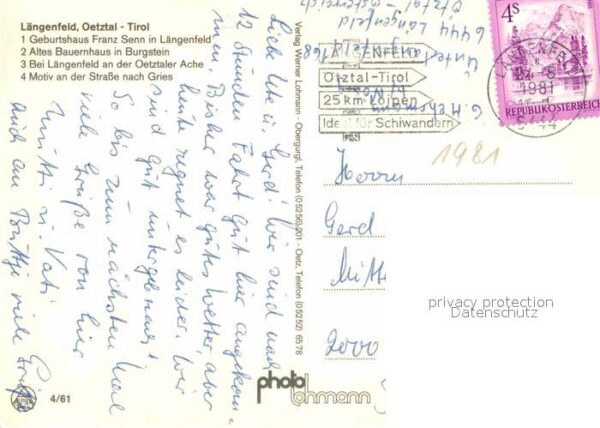 Längenfeld, Oetztal - Tirol
1 Geburtshaus Franz Senn in Längenfeld
2 Altes Bauernhaus in Burgstein
3 Bei Längenfeld an der Oetztaler Ache
4 Motiv an der Straße nach Gries
Liebe Ute u. Gerd! Wir sind nach
12 Stunden Fahrt gut hier angekom-
men. Bisher war gutes Wetter, aber
heute regnet es leider. Wir
sind gut untergebracht.
So bis zum nächsten Mal
viele Grüße von hier
Mutti u. Vati
auch an Puttzi viele Grüße
4/61
Verlag Werner Lohmann - Obergurgl, Telefon (05256) 201 - Oetz, Telefon (05252) 6578
photo
lohmann
G. Mehrmann
Unterlängenfeld 168
6444 Längenfeld
Ötztal - Österreich
ENFELD
Ötztal-Tirol
25 km Loipen
Ideal für Schiwandern
LÄNGENFELD
1981
6444
4S
REPUBLIK ÖSTERREICH
1981
Herrn
Gerd
2000
privacy protection
Datenschutz